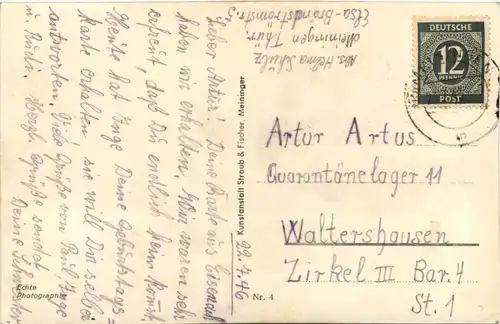 Abs. Helma Schulz
Meiningen Thür.
Elsa-Brandströmstr. 3
DEUTSCHE
12
PFENNIG
POST
22.7.46
Lieber Artur! Deine Karte aus Eisenach
haben wir erhalten, wir waren sehr
erfreut, daß Du endlich heim kommst
Heute hat Inge Deine Geburtstags=
karte erhalten sie will Dir selber
antworten. Viele Grüße von Paul, Inge
u. Rudi. Herzl. Grüße sendet
Deine Schwester
Kunstanstalt Straub & Fischer, Meiningen
Artur Artus
Quarantänelager 11
Waltershausen
Zirkel III Bar. 4
St. 1
Echte
Photographie
Nr. 4